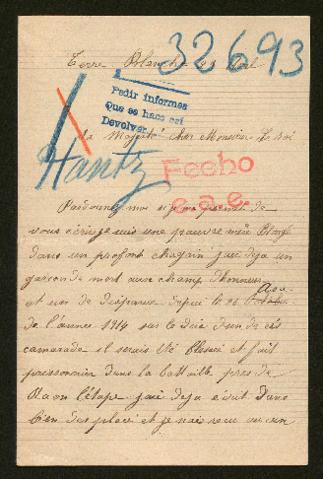 32693
Terre Blanche
Pedir informes
Que se hace así
Devolver
La Majesté Cher Monsieur le Roi
Hantz
Fecho
e.a.e.
Pardonnez moi si je me permet de
vous écrire je suis une pauvre mère Plongé
dans un profont chagrin j'aie deja un
garcon de mort aux champ d'honneur
et un de disparue depuis le 26 Aou
de l'année 1914 sur le dire d'un de ces
camarade il serais été blessé et fait
prisonnier dans la battaille pres de
Raon l'étape j'aie deja écrit dans
bien des place et je n'ais reçu aucun